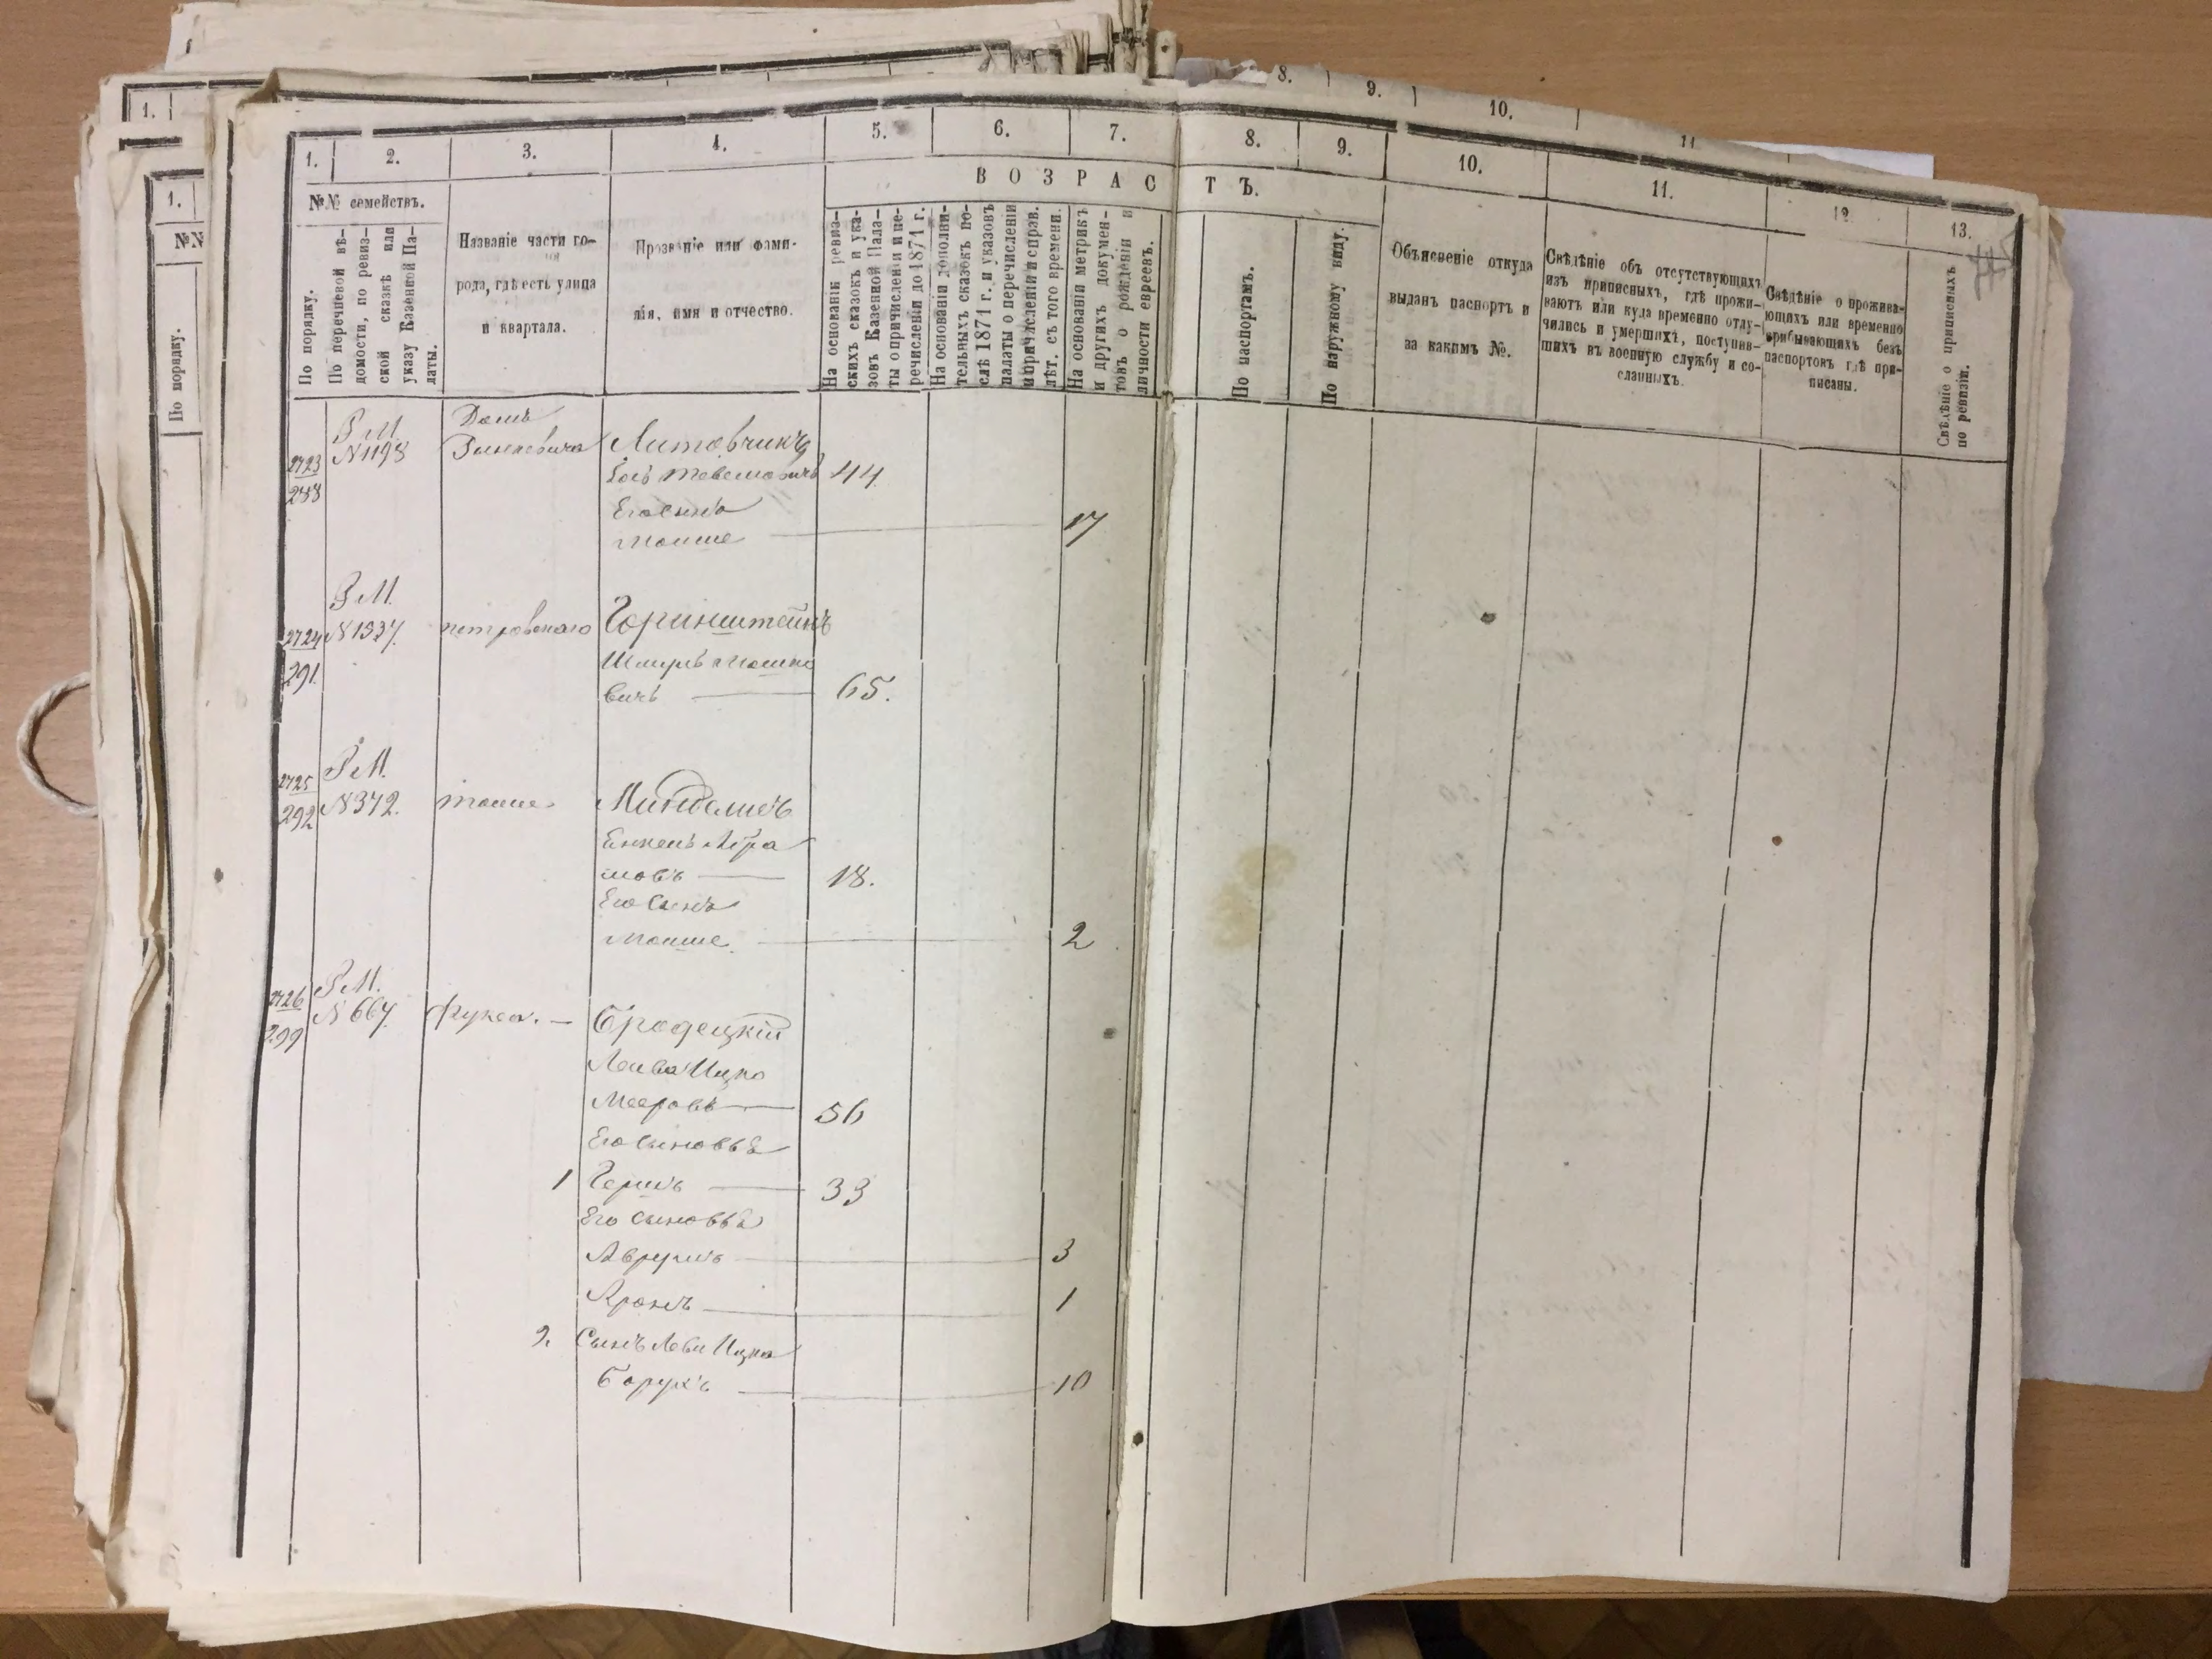 8.
9.
10.
11
1.
1.
№№
По порядку.
1.
2.
3.
4.
5.
6.
7.
8.
9.
10.
11.
12.
13.
В О З Р А С Т Ъ.
№№ семействъ.
По порядку.
По перечневой вѣ-
домости, по ревиз-
ской сказкѣ или
указу Казенной Па-
латы.
Названіе части го-
рода, гдѣ есть улица
и квартала.
Прозваніе или фами-
лія, имя и отчество.
На основаніи ревиз-
скихъ сказокъ и ука-
зовъ Казенной Пала-
ты о причисленіи и пе-
речисленіи до 1871 г.
На основаніи дополни-
тельныхъ сказокъ по-
слѣ 1871 г. и указовъ
палаты о перечисленіи
и причисленіи и справ.
лѣт. съ того времени.
На основаніи метрикъ
и другихъ докумен-
товъ о рожденіи и
личности евреевъ.
По паспортамъ.
По наружному виду.
Объясненіе откуда
выданъ паспортъ и
за какимъ №.
Свѣдѣніе объ отсутствующихъ
изъ приписныхъ, гдѣ прожи-
ваютъ или куда временно отлу-
чились и умершихъ, поступив-
шихъ въ военную службу и со-
сланныхъ.
Свѣдѣніе о прожива-
ющихъ или временно
прибывающихъ безъ
паспортовъ гдѣ при-
писаны.
Свѣдѣніе о приписныхъ
по ревизіи.
2723
288
Р М.
N 1198
Домъ
Зинкевича
Литовчикъ
44
Его сынъ
Мошше 17
2724
291
Р М.
N 1337.
петровскаго
Горинштейнъ
Шмуль Мошко
вичъ 65.
2725
292
Р М.
N 372.
тоже
Миндаличъ
Енкель Абра
мовъ 18.
Его Сынъ
Мошше 2
2726
299
Р М.
N 667.
Фукса. —
Бродецкій
Лейба Ицко
Мееровъ 56
Его Сыновья
1 Гершъ 33
Его сыновья
Аврумъ 3
Аронъ 1
2. Сынъ Лейби Ицка
Борухъ 10